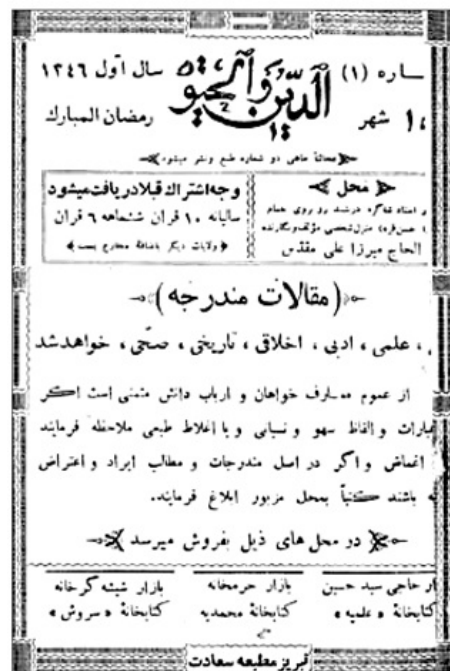 ساره (۱)
الدين و الحيوة
سال اول ۱۳۴۶
شهر
رمضان المبارك
محلتاً ماهی دو شماره طبع و نشر میشود
محل
و استاد شاگرد درشند رو روی حمام
« حسن قره » منزل شخصی مؤلف و نگارنده
الحاج میرزا علی مقدس
وجه اشتراك قبلا دریافت میشود
سالیانه ۱۰ قران ششماهه ۶ قران
ولایات دیگر باضافهٔ مخارج پست
(مقالات مندرجه)
، علمی ، ادبی ، اخلاقی ، تاریخی ، صحّی ، خواهد شد
از عموم معارف خواهان و ارباب دانش متمنی است اگر
عبارات و الفاظ سهو و نسیانی و یا اغلاط طبعی ملاحظه فرمایند
اغماض و اگر در اصل مندرجات و مطالب ایراد و اعتراض
باشند کتباً بمحل مزبور ابلاغ فرمایند.
در محل های ذیل بفروش میرسد
حاجی سید حسین
کتابخانهٔ « علمیه »
بازار حرمخانه
کتابخانهٔ محمدیه
بازار شیشه گرخانه
کتابخانهٔ « سروش »
تبریز مطبعه سعادت